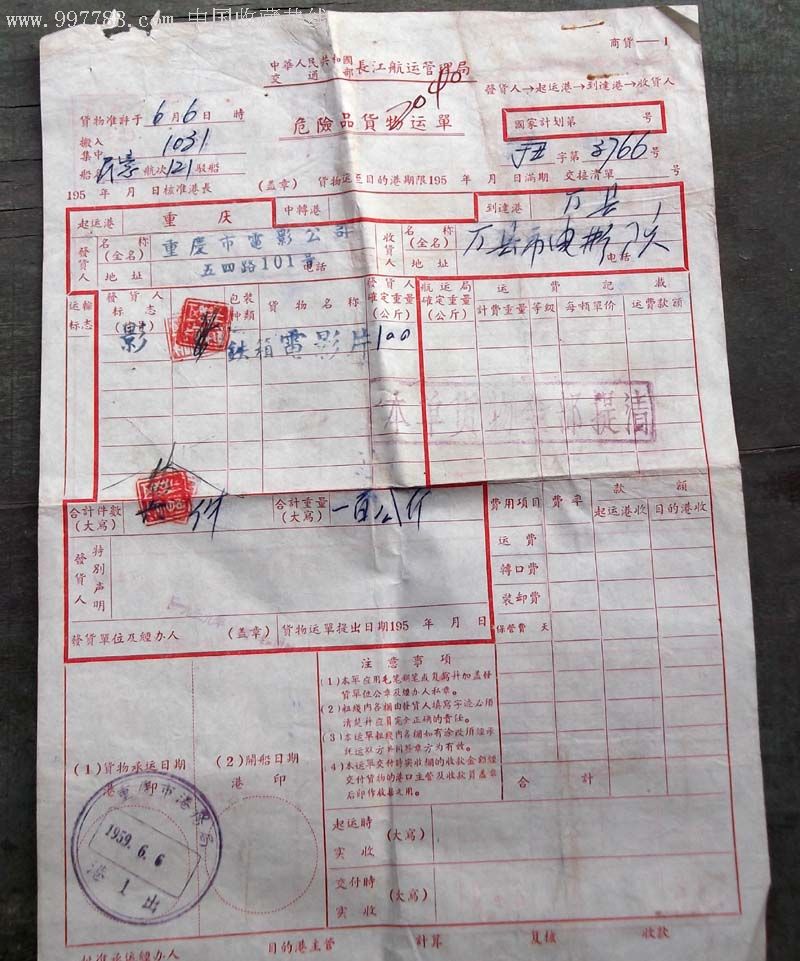 www.997788.com 中国收藏热线
商貨——1
中華人民共和國
交通部
長江航运管理局
發貨人→起运港→到達港→收貨人
貨物准許于 6月6日 時
2040
危險品貨物运單
國家計划第 號
搬入
集中
1031
字第 3766 号
船 航次 121 駁船
195 年 月 日核准港長 (蓋章) 貨物运至目的港期限195 年 月 日滿期 交接清單
起运港 重慶 中轉港 到達港 万县
發貨人 名称(全名) 重慶市電影公司 收貨人 名称(全名) 万县市电影
地址 五四路101号 電話 地址 电話
运輸标志 發貨人标志 包装种類 貨物名称 發貨人確定重量(公斤) 航运局確定重量(公斤) 运費記載
計費重量 等級 每噸單价 运費款額
影 鉄箱 電影片 100
本單貨物全部提清
合計件數(大寫) 件 合計重量(大寫) 一百公斤
費用項目 費率 款額
起运港收 目的港收
發貨人特別声明
运費
轉口費
装卸費
保管費 天
發貨單位及經办人 (蓋章) 貨物运單提出日期195 年 月 日
注意事項
(1)本單应用毛筆鋼筆或复寫幷加蓋發
貨單位公章及經办人私章。
(2)粗綫內各欄由發貨人填寫字迹必須
清楚幷应負完全正確的責任。
(3)本运單粗綫內各欄如有涂改須經承
託运双方共同簽章方为有效。
(4)本运單交付時实收欄的收款金額經
交付貨物的港口主管及收款員蓋章
后即作收据之用。
合計
(1)貨物承运日期
港印
(2)開船日期
港印
重慶市港務局
1959.6.6
港1出
起运時实收 (大寫)
交付時实收 (大寫)
批准承运經办人 目的港主管 計算 复核 收款